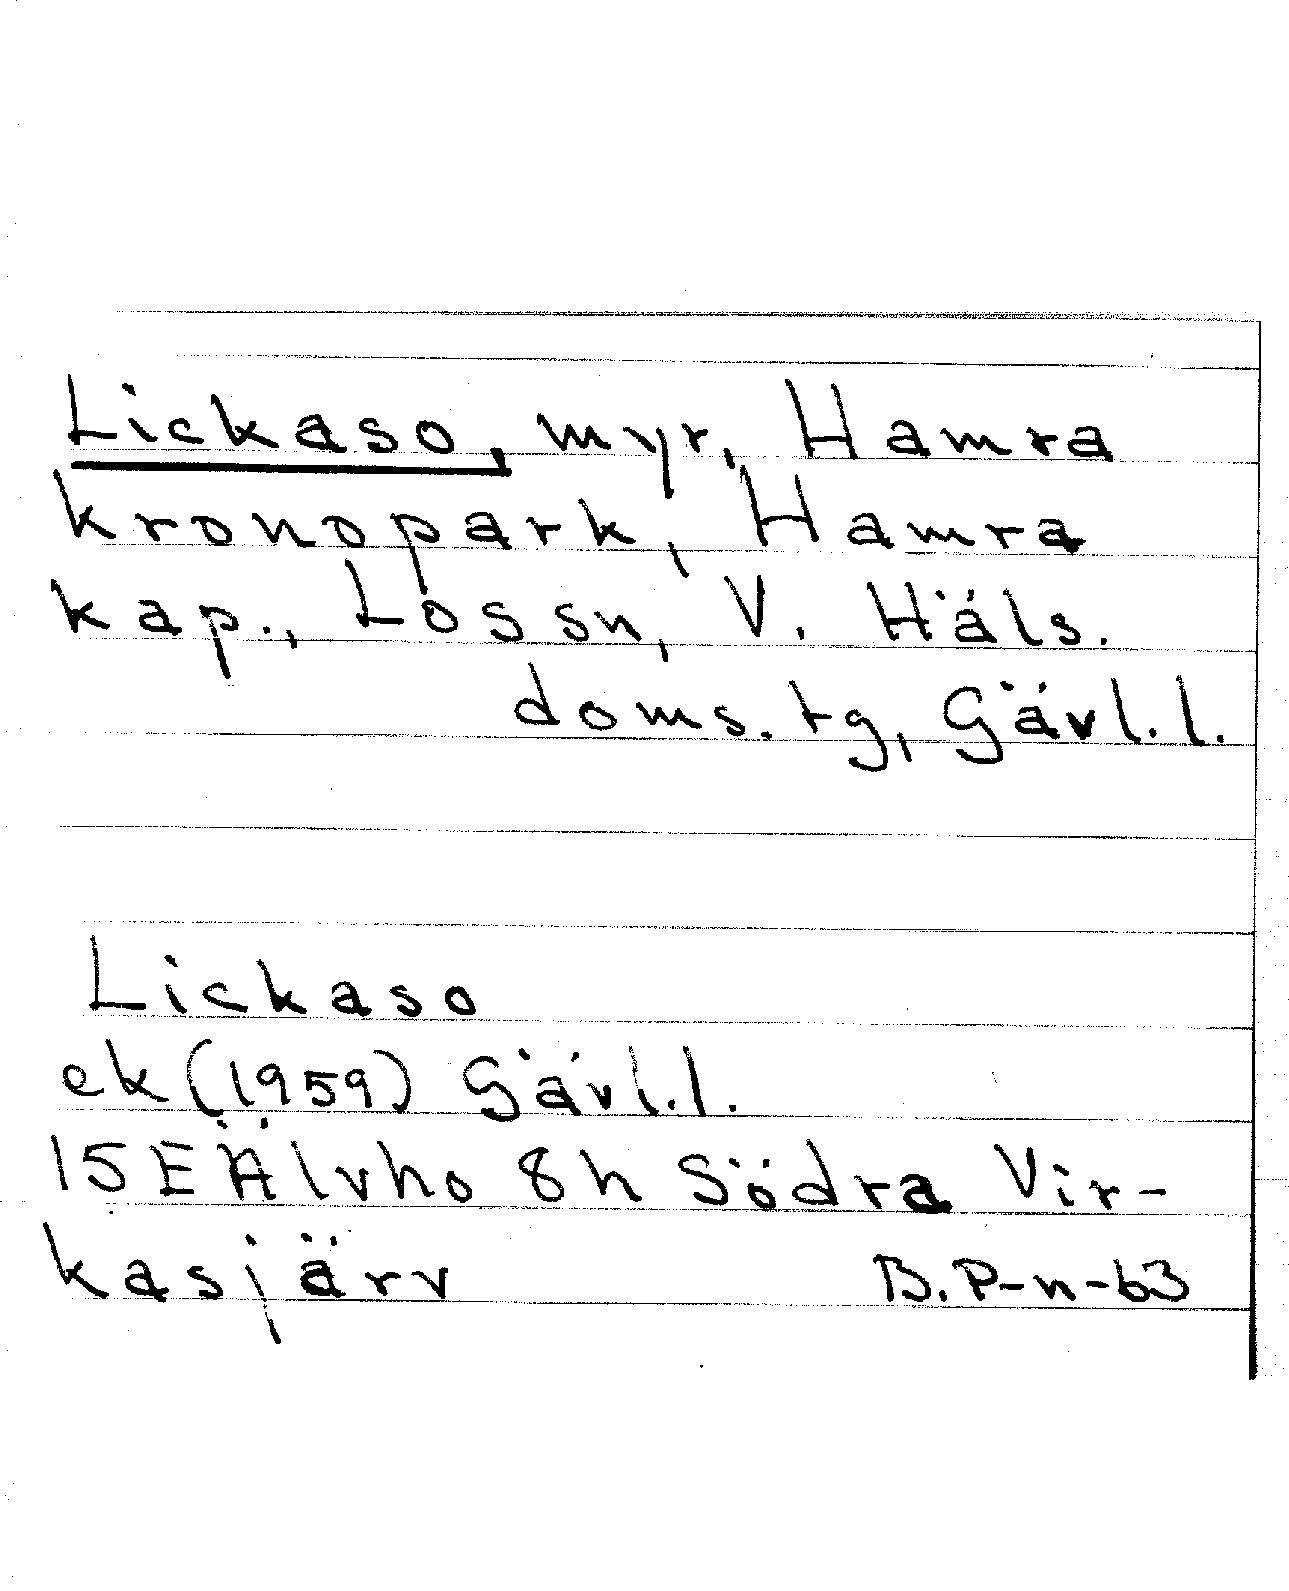 Lickaso, myr, Hamra
kronopark, Hamra
kap., Lossn, V. Häls.
doms.tg, Gävl.l.
Lickaso
ek (1959) Gävl.l.
15E Älvho 8h Södra Vir-
kasjärv B.P-n-63